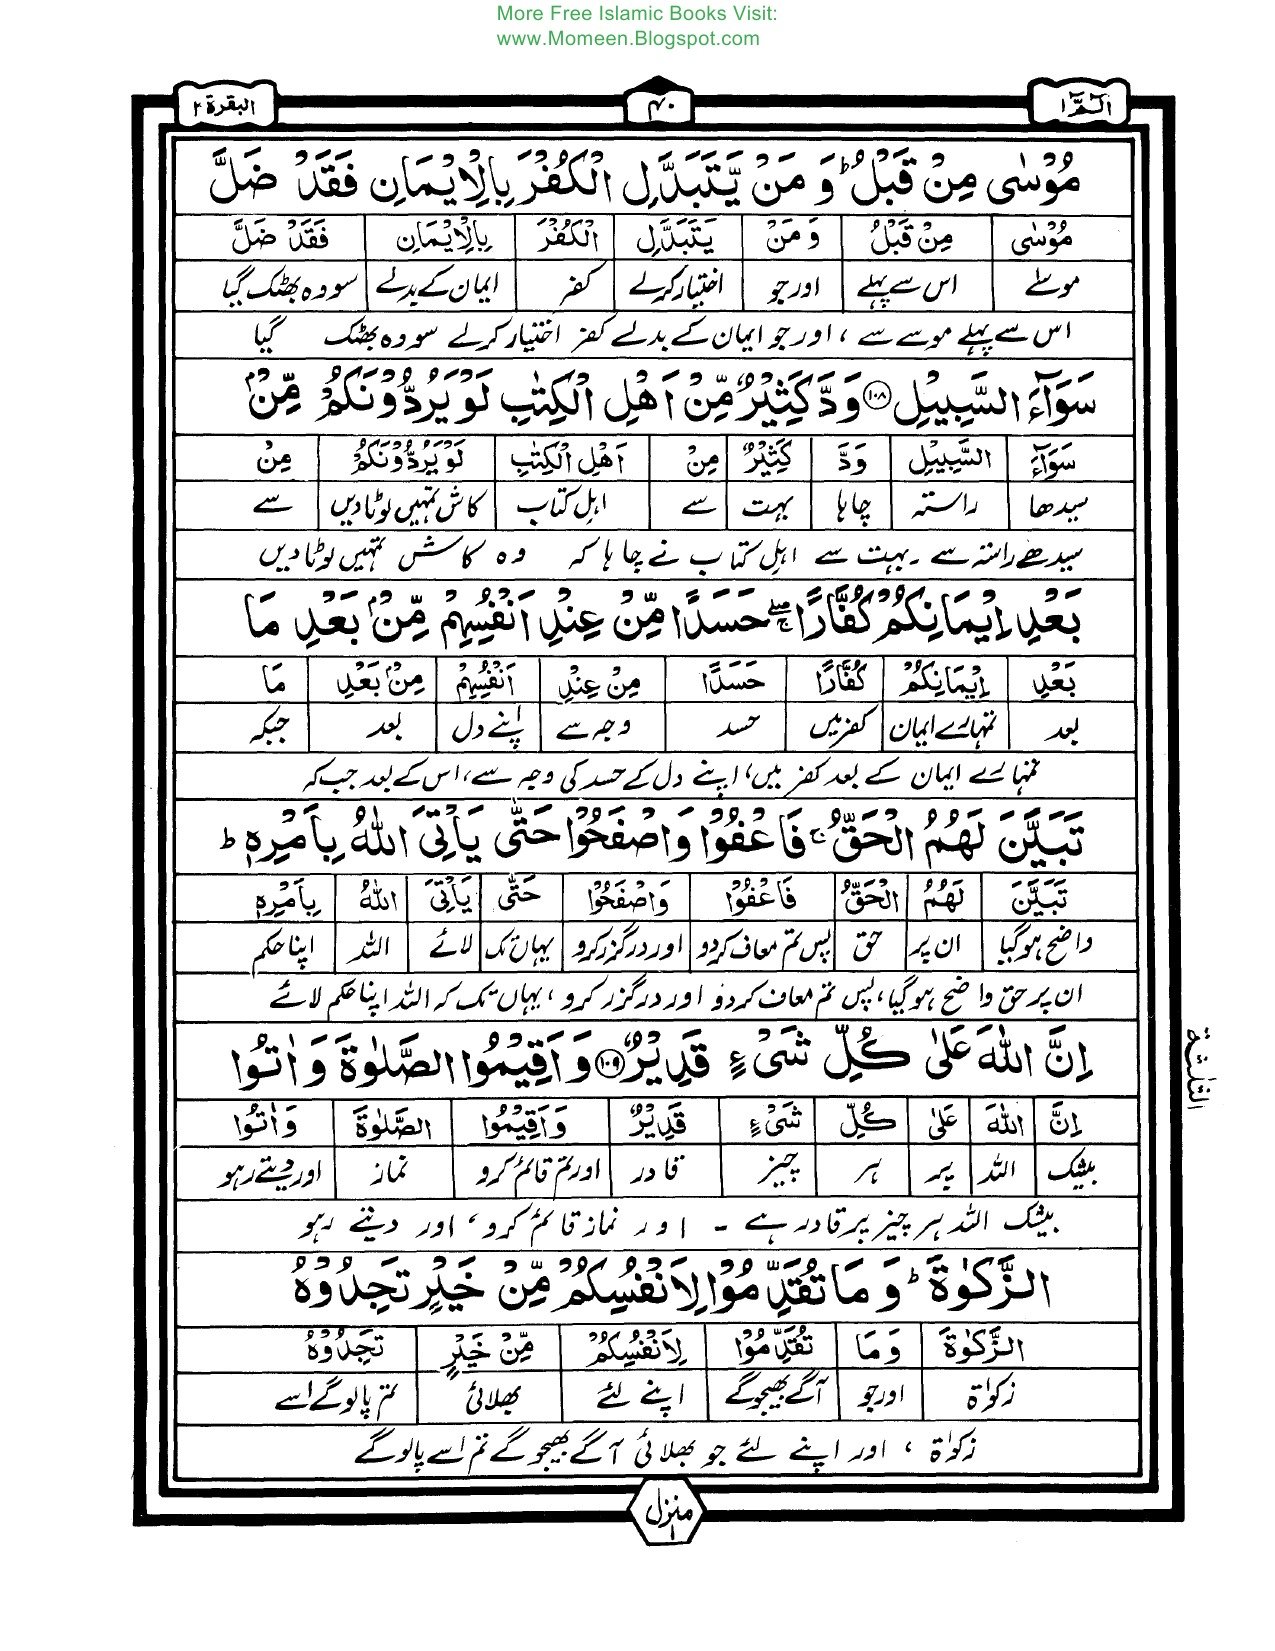 More Free Islamic Books Visit:
www.Momeen.Blogspot.com
الٓمّٓ ۱
۴۰
البقرة ۲
مُوْسٰى مِنْ قَبْلُ ؕ وَ مَنْ يَّتَبَدَّلِ الْكُفْرَ بِالْاِيْمَانِ فَقَدْ ضَلَّ
مُوْسٰى مِنْ قَبْلُ وَ مَنْ يَتَبَدَّلِ الْكُفْرَ بِالْاِيْمَانِ فَقَدْ ضَلَّ
موسےٰ اس سے پہلے اور جو اختیار کرلے کفر ایمان کے بدلے سو وہ بھٹک گیا
اس سے پہلے موسے سے ، اور جو ایمان کے بدلے کفر اختیار کرلے سو وہ بھٹک گیا
سَوَآءَ السَّبِيْلِ ۱۰۸ وَدَّ كَثِيْرٌ مِّنْ اَهْلِ الْكِتٰبِ لَوْ يَرُدُّوْنَكُمْ مِّنْۢ
سَوَآءَ السَّبِيْلِ وَدَّ كَثِيْرٌ مِنْ اَهْلِ الْكِتٰبِ لَوْ يَرُدُّوْنَكُمْ مِنْ
سیدھا راستہ چاہا بہت سے اہل کتاب کاش تمہیں لوٹا دیں سے
سیدھے راستہ سے ۔ بہت سے اہلِ کتاب نے چاہا کہ وہ کاش تمہیں لوٹا دیں
بَعْدِ اِيْمَانِكُمْ كُفَّارًا ۚۖ حَسَدًا مِّنْ عِنْدِ اَنْفُسِهِمْ مِّنْۢ بَعْدِ مَا
بَعْدِ اِيْمَانِكُمْ كُفَّارًا حَسَدًا مِنْ عِنْدِ اَنْفُسِهِمْ مِنْۢ بَعْدِ مَا
بعد تمہارے ایمان کفر میں حسد وجہ سے اپنے دل بعد جبکہ
تمہارے ایمان کے بعد کفر میں، اپنے دل کے حسد کی وجہ سے، اس کے بعد جب کہ
تَبَيَّنَ لَهُمُ الْحَقُّ ۚ فَاعْفُوْا وَاصْفَحُوْا حَتّٰى يَاْتِىَ اللّٰهُ بِاَمْرِهٖ ؕ
تَبَيَّنَ لَهُمُ الْحَقُّ فَاعْفُوْا وَاصْفَحُوْا حَتّٰى يَاْتِىَ اللّٰهُ بِاَمْرِهٖ
واضح ہوگیا ان پر حق پس تم معاف کردو اور درگزر کرو یہاں تک لائے اللہ اپنا حکم
ان پر حق واضح ہوگیا، پس تم معاف کردو اور درگزر کرو ، یہاں تک کہ اللہ اپنا حکم لائے
اِنَّ اللّٰهَ عَلٰى كُلِّ شَىْءٍ قَدِيْرٌ ۱۰۹ وَاَقِيْمُوا الصَّلٰوةَ وَاٰتُوا
اِنَّ اللّٰهَ عَلٰى كُلِّ شَىْءٍ قَدِيْرٌ وَاَقِيْمُوا الصَّلٰوةَ وَاٰتُوا
بیشک اللہ پر ہر چیز قادر اور تم قائم کرو نماز اور دیتے رہو
بیشک اللہ ہر چیز پر قادر ہے ۔ اور نماز قائم کرو ، اور دیتے رہو
الثلثة
الزَّكٰوةَ ؕ وَ مَا تُقَدِّمُوْا لِاَنْفُسِكُمْ مِّنْ خَيْرٍ تَجِدُوْهُ
الزَّكٰوةَ وَ مَا تُقَدِّمُوْا لِاَنْفُسِكُمْ مِّنْ خَيْرٍ تَجِدُوْهُ
زکوٰۃ اور جو آگے بھیجوگے اپنے لئے بھلائی تم پالوگے اسے
زکوٰۃ ، اور اپنے لئے جو بھلائی آگے بھیجوگے تم اسے پالوگے
منزل ۱